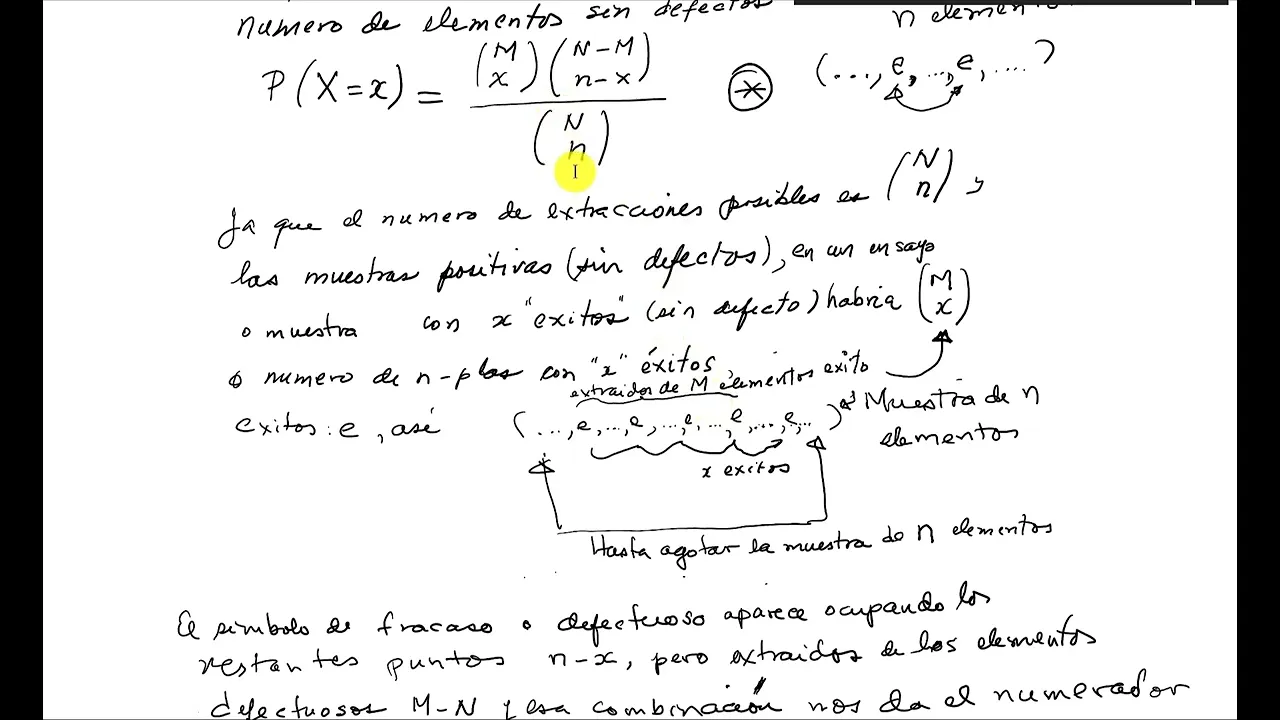 numero de elementos sin defectos
n elemen
P(X=x) = \frac{\binom{M}{x}\binom{N-M}{n-x}}{\binom{N}{n}} ⊛ (..., e, ..., e, ....)
Ya que el numero de extracciones posibles es \binom{N}{n} y
las muestras positivas (sin defectos), en un ensayo
o muestra con x "exitos" (sin defecto) habria \binom{M}{x}
o numero de n-plas con "x" éxitos,
extraidos de M elementos exito
exitos: e, asé (..., e, ..., e, ..., e, ..., e, ..., e, ...) Muestra de n
elementos
x exitos
Hasta agotar la muestra de n elementos
El simbolo de fracaso o defectuoso aparece ocupando los
restantes puntos n-x, pero extraidos de los elementos
defectuosos M-N y esa combinación nos da el numerador